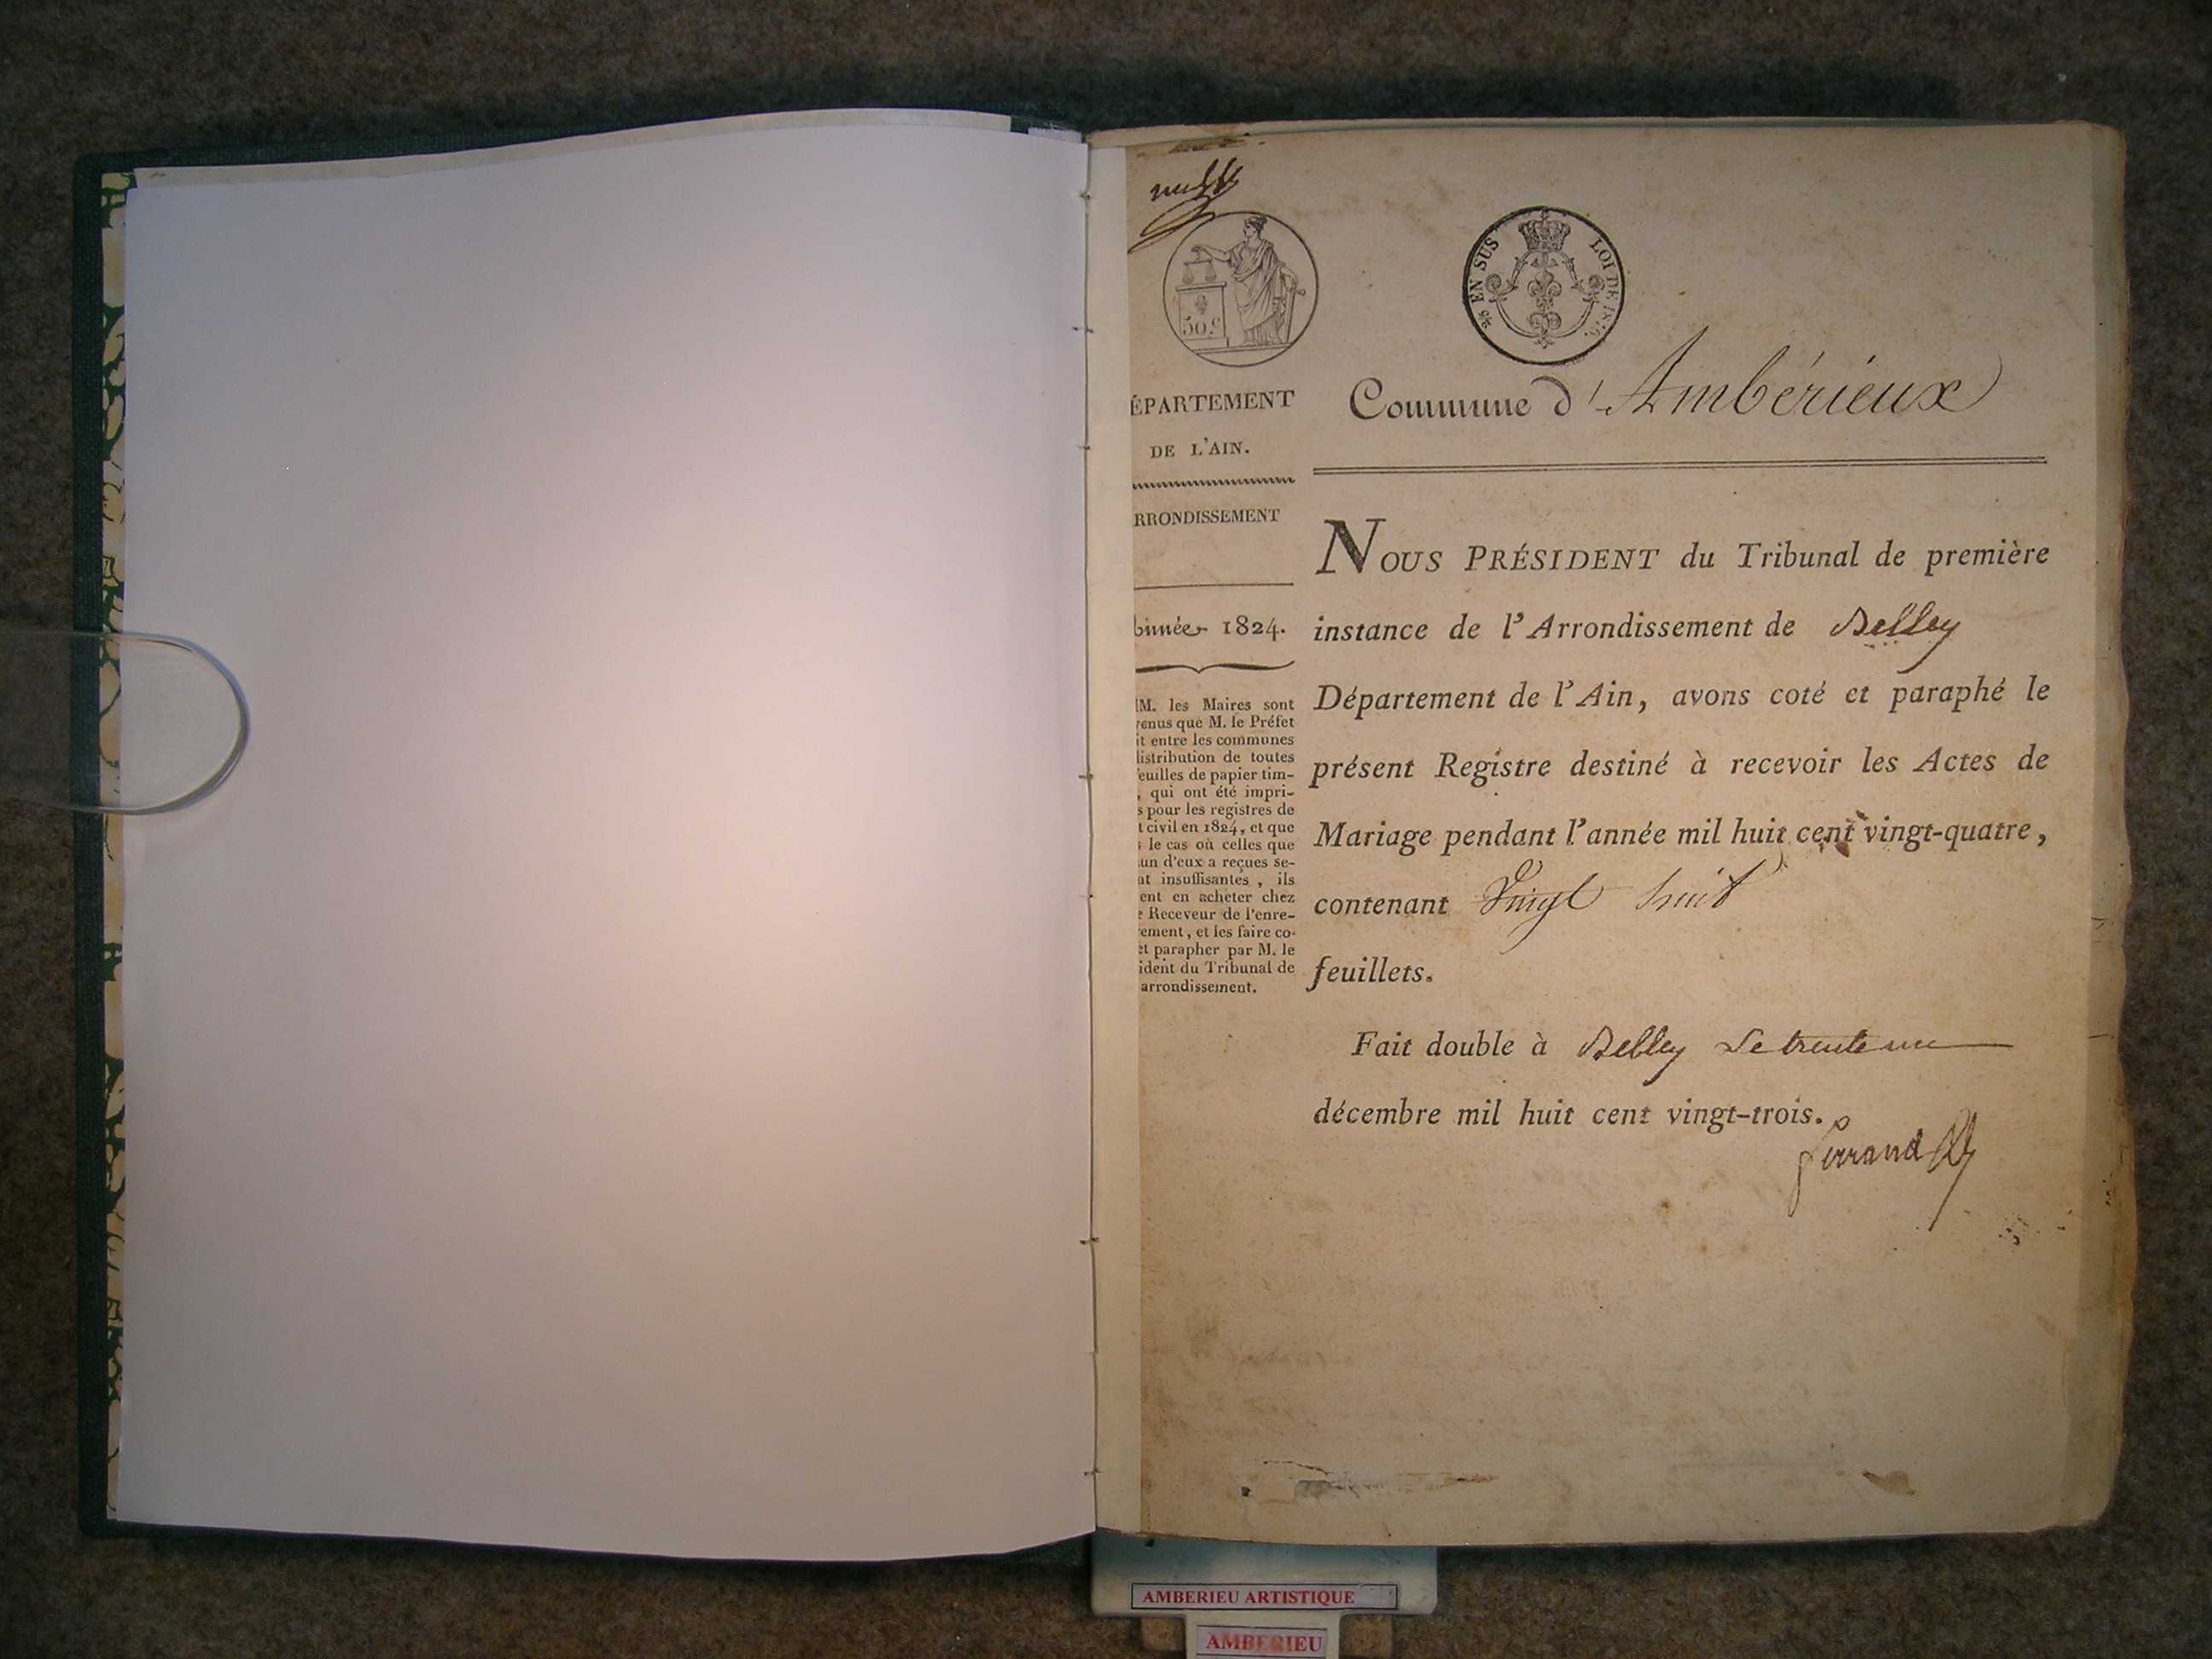 50.c
EN SUS
LOI DE 1816.
Commune d'Ambérieux
ÉPARTEMENT
DE L'AIN.
RRONDISSEMENT
année 1824.
M. les Maires sont
enus que M. le Préfet
it entre les communes
istribution de toutes
euilles de papier tim-
, qui ont été impri-
s pour les registres de
t civil en 1824, et que
le cas où celles que
un d'eux a reçues se-
nt insuffisantes, ils
ent en acheter chez
e Receveur de l'enre-
ement, et les faire co-
et parapher par M. le
ident du Tribunal de
arrondissement.
NOUS PRÉSIDENT du Tribunal de première
instance de l'Arrondissement de Belley
Département de l'Ain, avons coté et paraphé le
présent Registre destiné à recevoir les Actes de
Mariage pendant l'année mil huit cent vingt-quatre,
contenant Vingt huit
feuillets.
Fait double à Belley Le trente un
décembre mil huit cent vingt-trois.
ferrand
AMBERIEU ARTISTIQUE
AMBERIEU